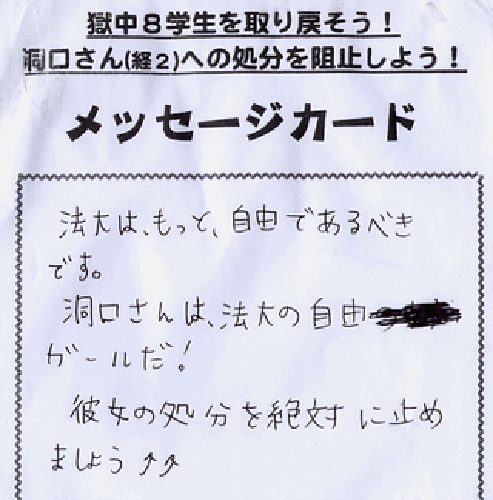 獄中8学生を取り戻そう！
洞口さん(経２)への処分を阻止しよう！
メッセージカード
法大は、もっと、自由であるべき
です。
洞口さんは、法大の自由
ガールだ！
彼女の処分を絶対に止め
ましょう↗↗